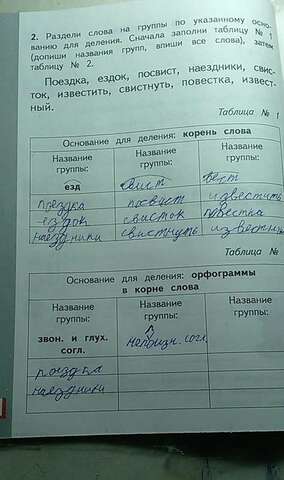 2. Раздели слова на группы по указанному осно-
ванию для деления. Сначала заполни таблицу № 1
(допиши названия групп, впиши все слова), затем
таблицу № 2.
Поездка, ездок, посвист, наездники, свис-
ток, известить, свистнуть, повестка, извест-
ный.
Таблица № 1
Основание для деления: корень слова
Название группы: Название группы: Название группы:
езд свист вест
поездка посвист известить
ездок свисток повестка
наездники свистнуть известный
Таблица №
Основание для деления: орфограммы
в корне слова
Название группы: Название группы: Название группы:
звон. и глух. согл. согл.
поездка
наездники